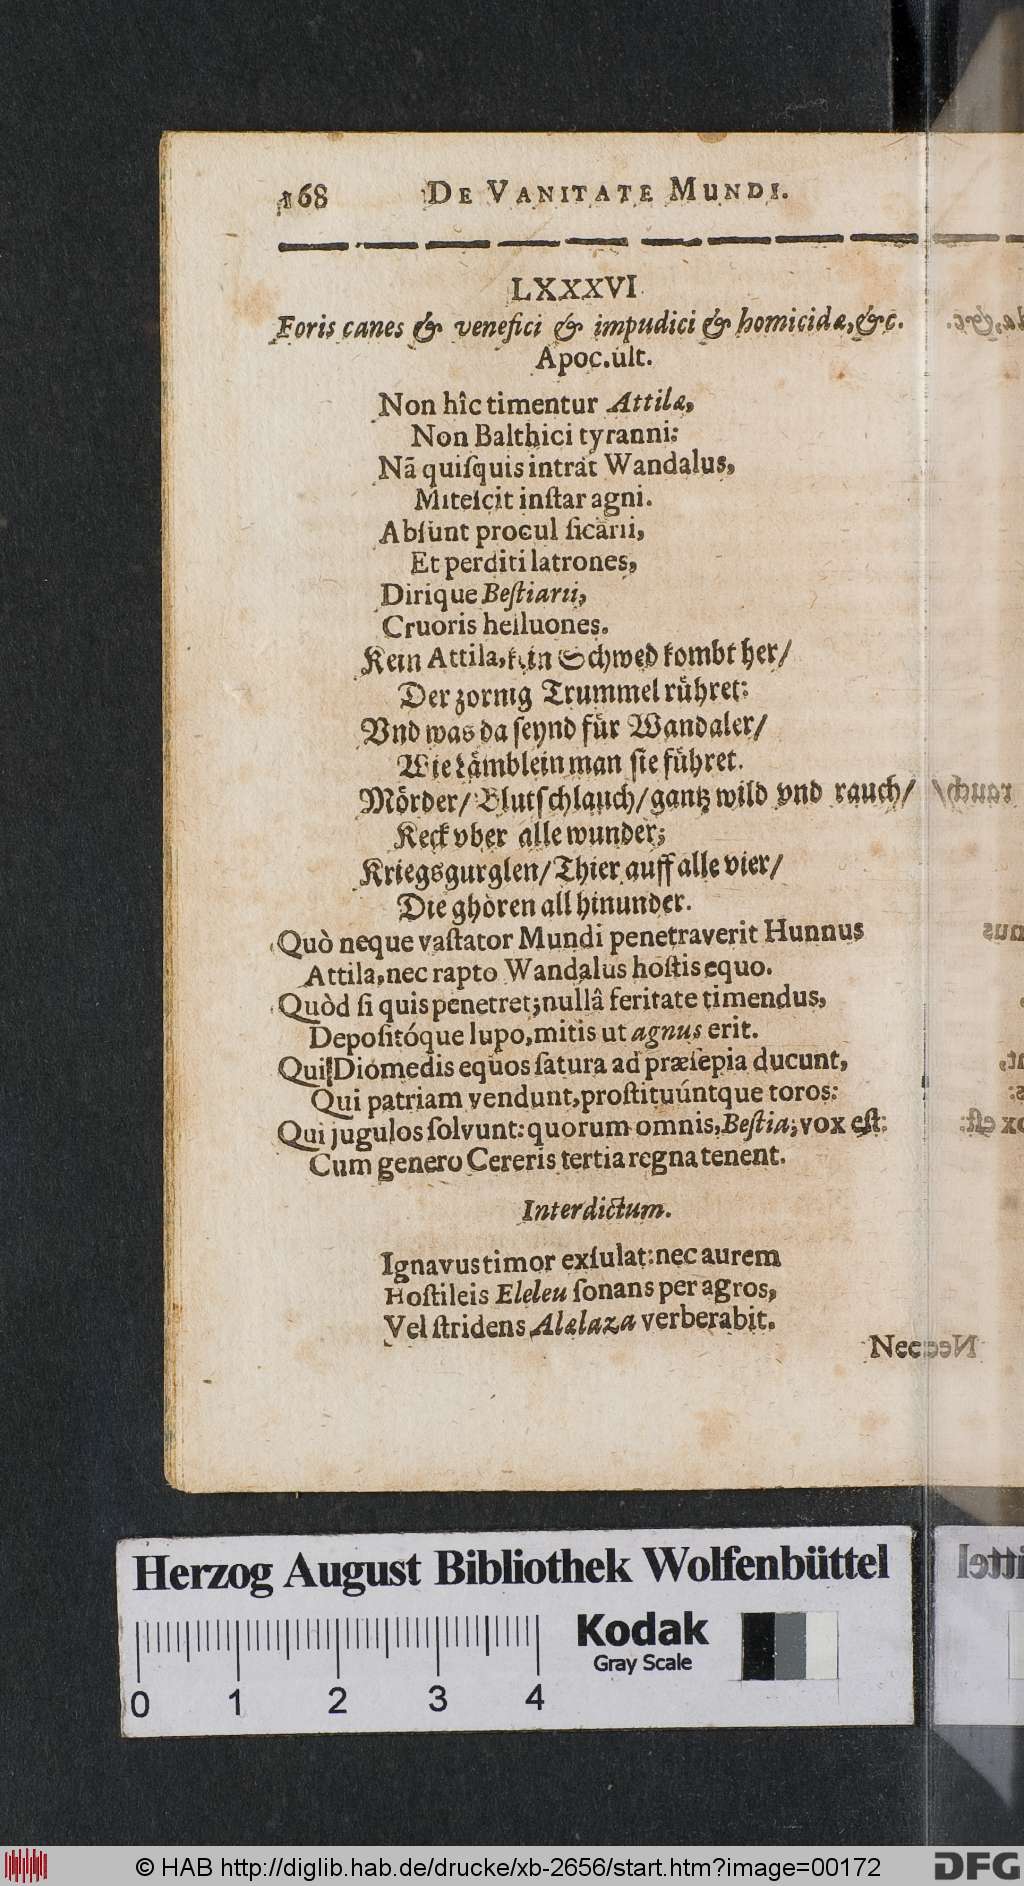 168 DE VANITATE MUNDI.
LXXXVI
Foris canes & venefici & impudici & homicidæ, &c.
Apoc. ult.
Non hîc timentur Attilæ,
Non Balthici tyranni:
Nã quiſquis intrat Wandalus,
Miteſcit inſtar agni.
Abſunt procul ſicarii,
Et perditi latrones,
Dirique Beſtiarii,
Cruoris helluones.
Kein Attila, kein Schwed kombt her/
Der zornig Trummel rühret:
Vnd was da ſeynd für Wandaler/
Wie Lämblein man ſie führet.
Mörder/ Blutſchlauch/ gantz wild vnd rauch/
Keck vber alle wunder;
Kriegsgurglen/ Thier auff alle vier/
Die ghören all hinunder.
Quò neque vaſtator Mundi penetraverit Hunnus
Attila, nec rapto Wandalus hoſtis equo.
Quòd ſi quis penetret; nullâ feritate timendus,
Depoſitóque lupo, mitis ut agnus erit.
Qui Diomedis equos ſatura ad præſepia ducunt,
Qui patriam vendunt, proſtituúntque toros:
Qui jugulos ſolvunt: quorum omnis, Beſtia; vox eſt:
Cum genero Cereris tertia regna tenent.
Interdictum.
Ignavus timor exſulat: nec aurem
Hoſtileis Eleleu ſonans per agros,
Vel ſtridens Alalaza verberabit.
Nec
Herzog August Bibliothek Wolfenbüttel
Kodak
Gray Scale
0 1 2 3 4
© HAB http://diglib.hab.de/drucke/xb-2656/start.htm?image=00172
DFG